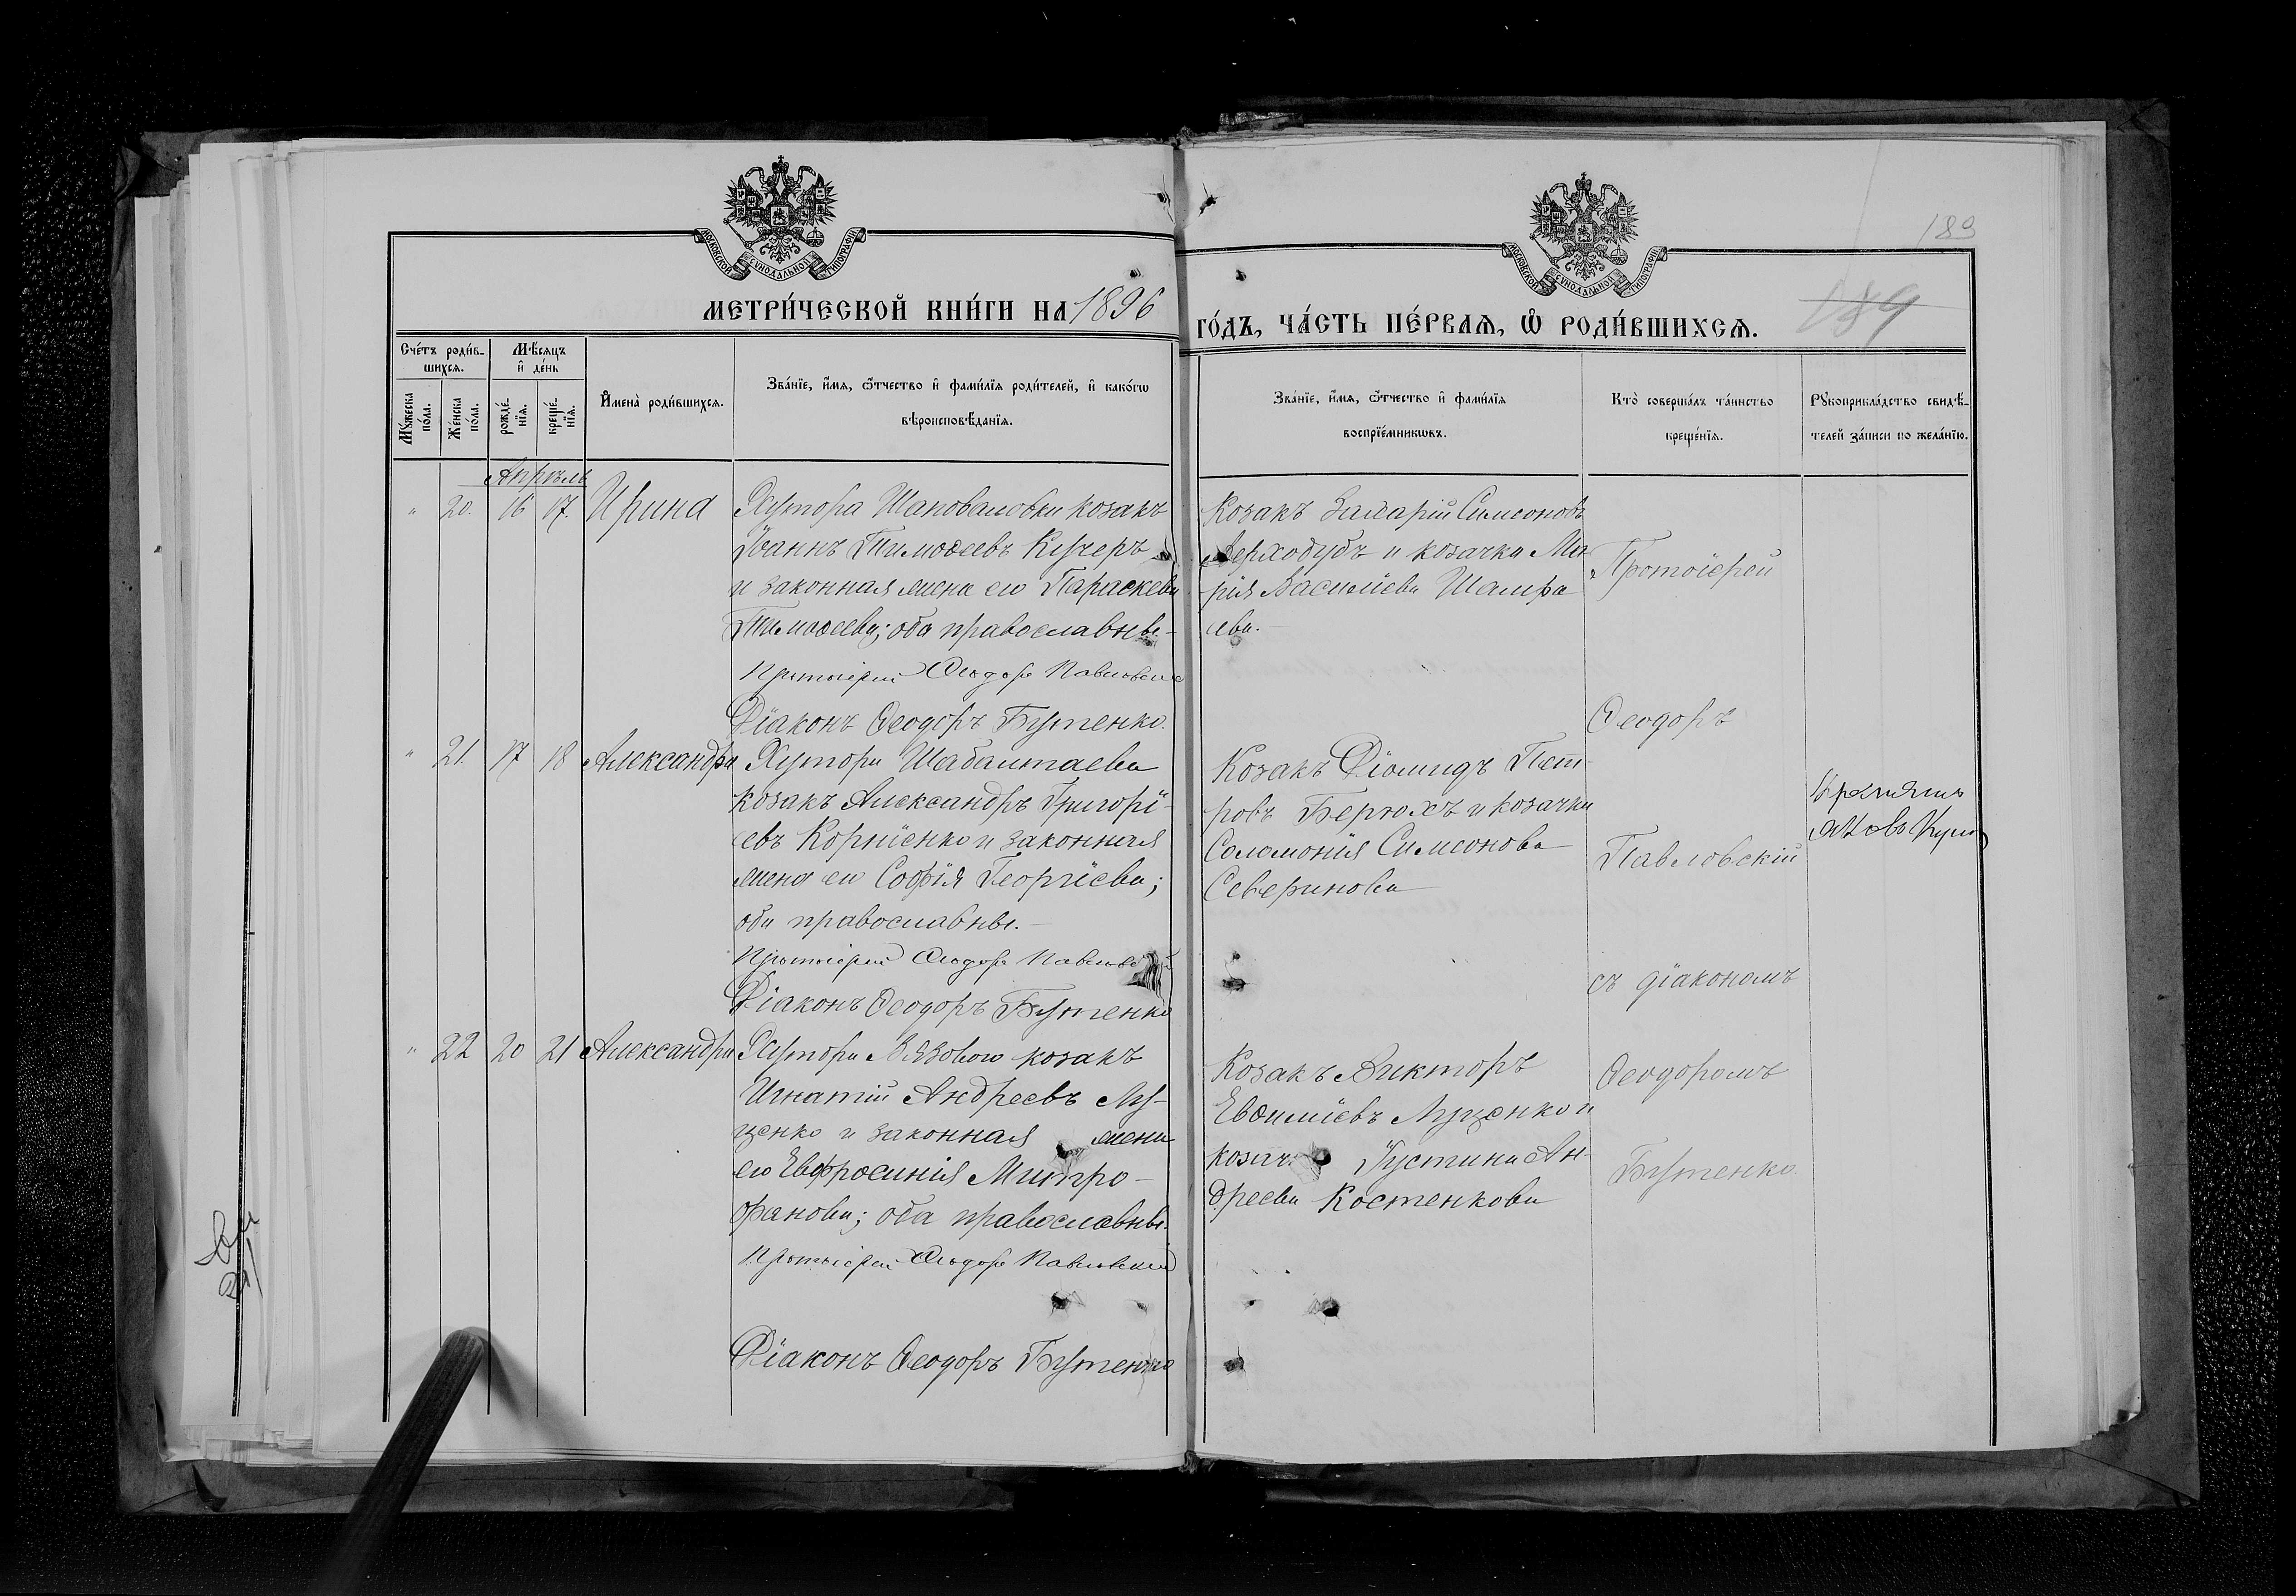 МОСКОВСКОЙ СУНОДАЛЬНОЙ ТИПОГРАФІИ
МОСКОВСКОЙ СУНОДАЛЬНОЙ ТИПОГРАФІИ
189
МЕТРИ́ЧЕСКОЙ КНИ́ГИ НА 1896
ГО́ДЪ, ЧА́СТЬ ПЕ́РВАѦ, Ѡ҆ РОДИ́ВШИХСѦ.
189
Сче́тъ роди́в-
шихсѧ.
Мѣ́сѧцъ
и҆ де́нь
Мꙋ́жеска
по́ла.
Же́нска
по́ла.
рожде́-
нїѧ.
креще́-
нїѧ.
И҆мена̀ роди́вшихсѧ.
Зва́нїе, и҆́мѧ, ѻ҆́тчество и҆ фами́лїѧ роди́телей, и҆ како́гѡ
вѣроисповѣ́данїѧ.
Зва́нїе, и҆́мѧ, ѻ҆́тчество и҆ фами́лїѧ
воспрїе́мникѡвъ.
Кто̀ соверша́лъ та́инство
креще́нїѧ.
Рꙋкоприкла́дство свидѣ́-
телей за́писи по жела́нїю.
Апрѣль
" 20. 16 17. Ирина
Хутора Шаповаловки козакъ
Іоаннъ Тимоѳеевъ Кучеръ
и законная жена его Параскева
Тимоѳеева; оба православные.-
Протоіерей Ѳеодоръ Павловскій
Діаконъ Ѳеодоръ Бутенко.
Козакъ Захарій Симеоновъ
Верходубъ и козачка Ма
рія Васильева Шамра
ева.-
Протоіерей
Ѳеодоръ
" 21. 17 18 Александра
Хутора Шабалтаева
козакъ Александръ Григорі-
евъ Корніенко и законная
жена его Софія Георгіева;
оба православные.-
Протоіерей Ѳеодоръ Павловскій
Діаконъ Ѳеодоръ Бутенко
Козакъ Діомидъ Пет-
ровъ Берюхъ и козачка
Соломонія Симеонова
Северинова
Павловскій
съ діакономъ
Яковъ
" 22 20 21 Александра
Хутора Вязового козакъ
Игнатій Андреевъ Лу-
ценко и законная жена
его Евфросинія Митро-
фанова; оба православные.
Протоіерей Ѳеодоръ Павловскій
Діаконъ Ѳеодоръ Бутенко
Козакъ Викторъ
Евѳиміевъ Луценко и
козач. Іустина Ан-
дреева Костенкова
Ѳеодоромъ
Бутенко.